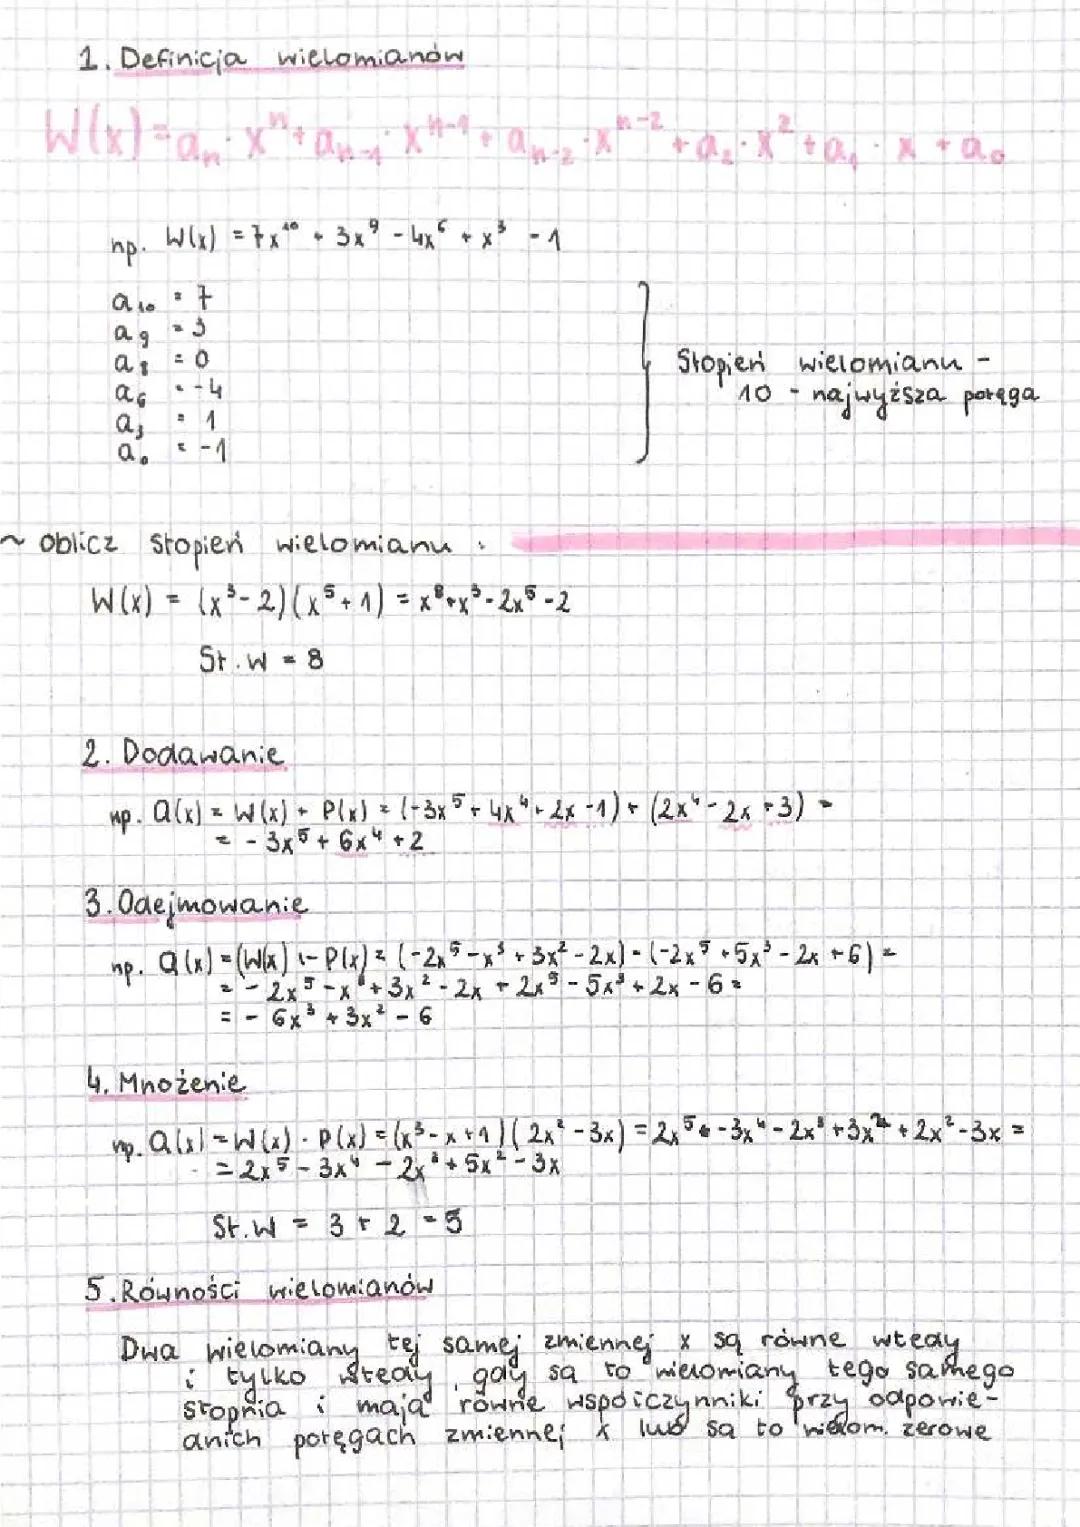 1. Definicja wielomianów
W(x) = aₙ · xⁿ + aₙ₋₁ · xⁿ⁻¹ + aₙ₋₂ · xⁿ⁻² + a₂ · x² + a₁ · x + a₀
np. W(x) = 7x¹⁰ + 3x⁹ - 4x⁶ + x³ - 1
a₁₀ = 7
a₉ = 3
a₈ = 0
a₆ = -4
a₃ = 1
a₀ = -1
Stopień wielomianu -
10 - najwyższa potęga
~ oblicz stopień wielomianu :
W(x) = (x³ - 2)(x⁵ + 1) = x⁸ + x³ - 2x⁵ - 2
St. W = 8
2. Dodawanie
np. Q(x) = W(x) + P(x) = (-3x⁵ + 4x⁴ + 2x - 1) + (2x⁴ - 2x + 3) =
= - 3x⁵ + 6x⁴ + 2
3. Odejmowanie
np. Q(x) = (W(x) - P(x) = (-2x⁵ - x³ + 3x² - 2x) - (-2x⁵ + 5x³ - 2x + 6) =
= - 2x⁵ - x³ + 3x² - 2x + 2x⁵ - 5x³ + 2x - 6 =
= - 6x³ + 3x² - 6
4. Mnożenie
np. Q(x) = W(x) · P(x) = (x³ - x + 1)(2x² - 3x) = 2x⁵ - 3x⁴ - 2x³ + 3x² + 2x² - 3x =
= 2x⁵ - 3x⁴ - 2x³ + 5x² - 3x
St. W = 3 + 2 = 5
5. Równości wielomianów
Dwa wielomiany tej samej zmiennej x są równe wtedy
i tylko wtedy, gdy są to wielomiany tego samego
stopnia i mają równe współczynniki przy odpowie-
dnich potęgach zmiennej x lub są to wielom. zerowe